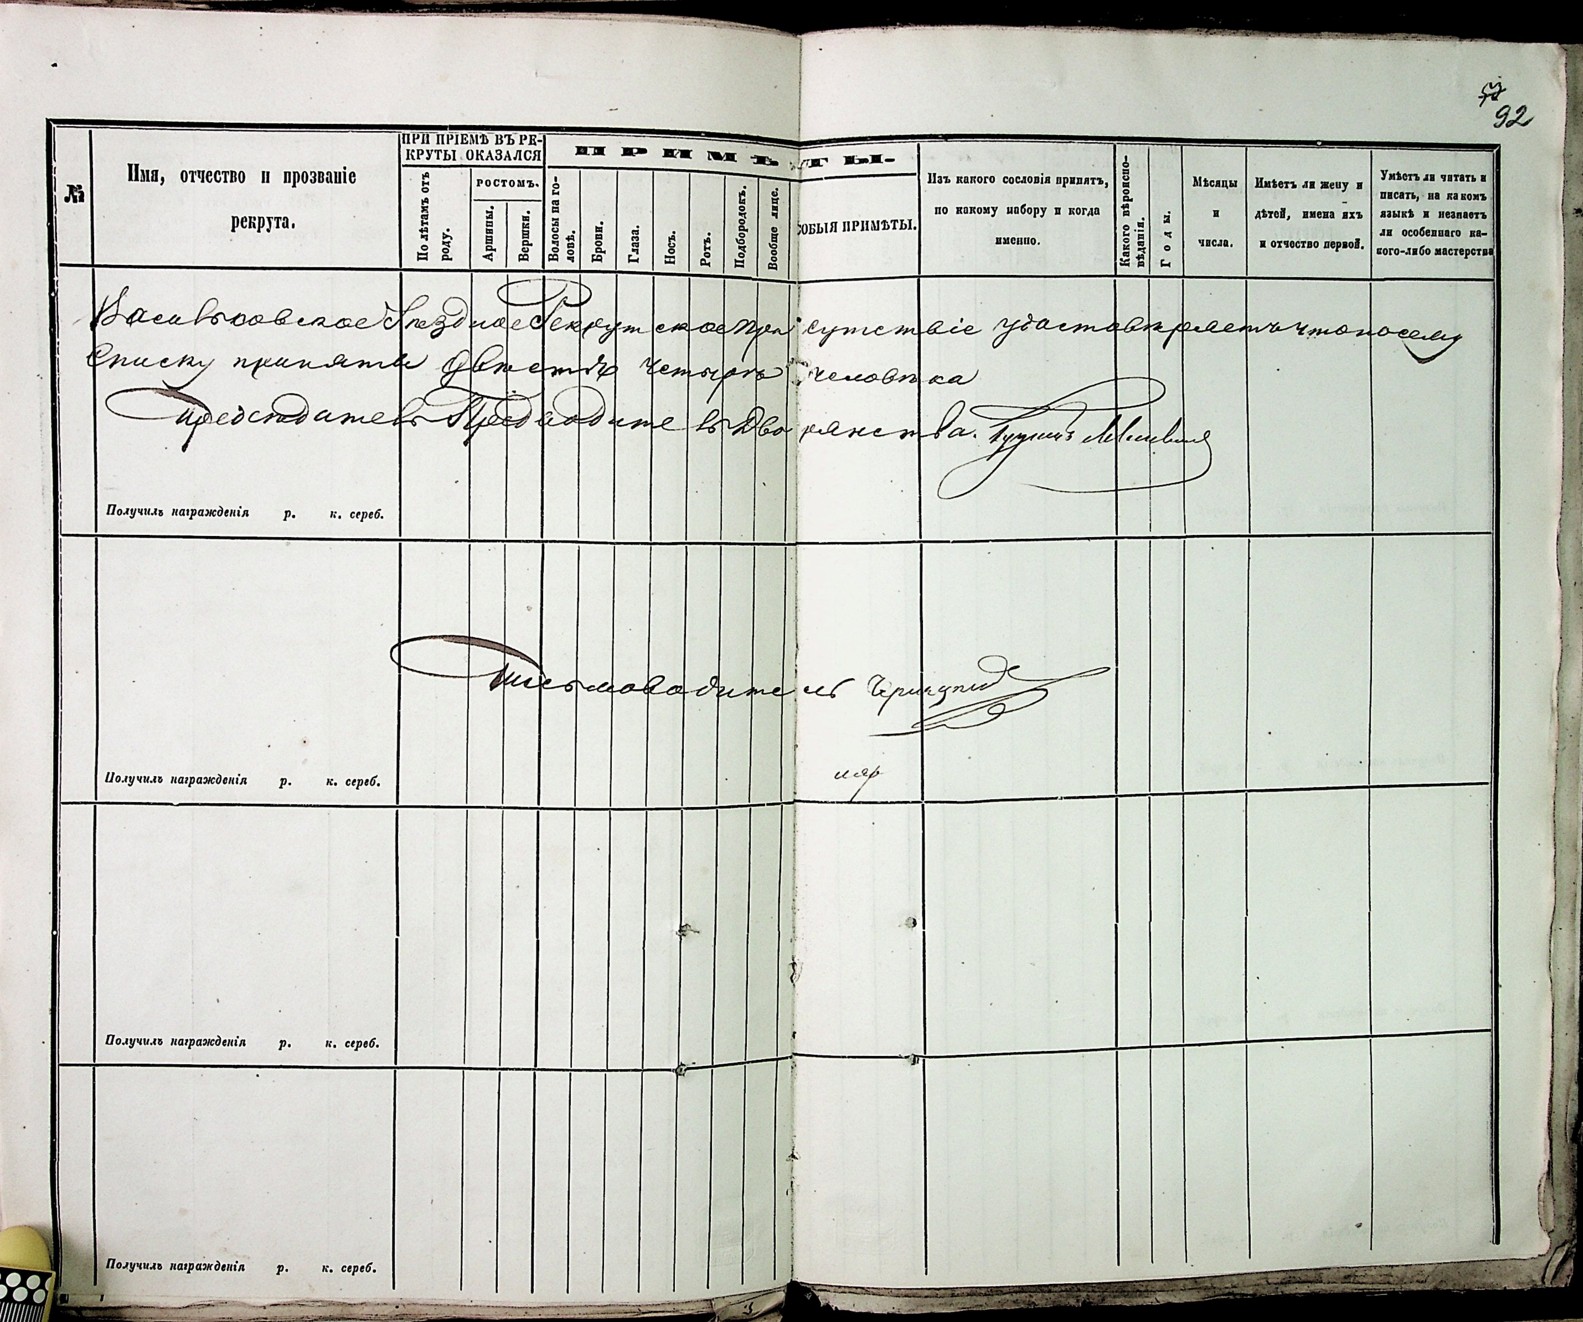 92
№
Имя, отчество и прозваніе
рекрута.
ПРИ ПРІЕМѢ ВЪ РЕ-
КРУТЫ ОКАЗАЛСЯ
По лѣтамъ отъ
роду.
РОСТОМЪ.
Аршины.
Вершки.
ПРИМѢТЫ.
Волосы на го-
ловѣ.
Брови.
Глаза.
Носъ.
Ротъ.
Подбородокъ.
Вообще лице.
СОБЫЯ ПРИМѢТЫ.
Изъ какого сословія принятъ,
по какому набору и когда
именно.
Какого вѣроиспо-
вѣданія.
Годы.
Мѣсяцы
и
числа.
Имѣетъ ли жену и
дѣтей, имена ихъ
и отчество первой.
Умѣетъ ли читать и
писать, на какомъ
языкѣ и незнаетъ
ли особеннаго ка-
кого-либо мастерства
Васильковское Уездное Рекрутское присутствіе удостовѣряетъ что по сему
списку принято двѣсти четыре человѣка
Председатель Предводитель Дворянства.
Получилъ награжденія р. к. сереб.
Письмоводитель
Получилъ награжденія р. к. сереб.
Получилъ награжденія р. к. сереб.
Получилъ награжденія р. к. сереб.